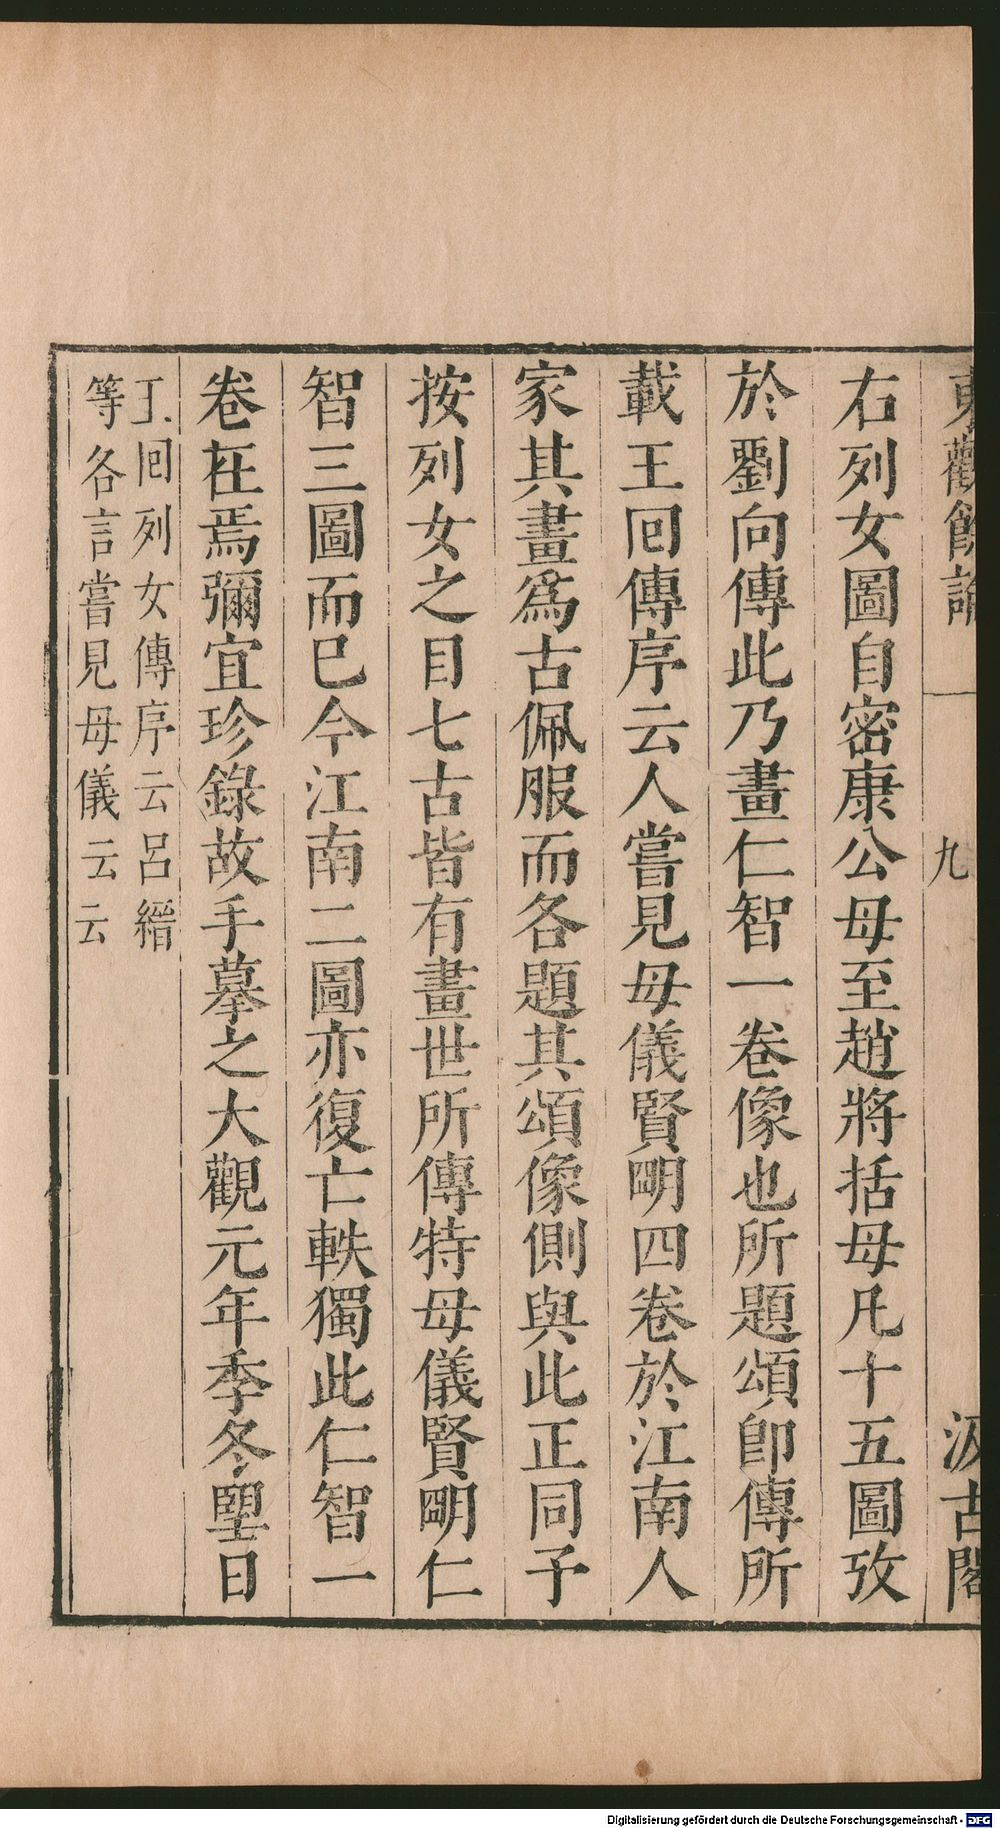 東觀餘論
九
汲古閣
右列女圖自密康公母至趙將括母凡十五圖攷
於劉向傳此乃畫仁智一卷像也所題頌卽傳所
載王回傳序云人嘗見母儀賢明四卷於江南人
家其畫爲古佩服而各題其頌像側與此正同予
按列女之目七古皆有畫世所傳特母儀賢明仁
智三圖而已今江南二圖亦復亡軼獨此仁智一
卷在焉彌宜珍錄故手摹之大觀元年季冬朢日
王回列女傳序云呂縉
等各言嘗見母儀云云
Digitalisierung gefördert durch die Deutsche Forschungsgemeinschaft - DFG